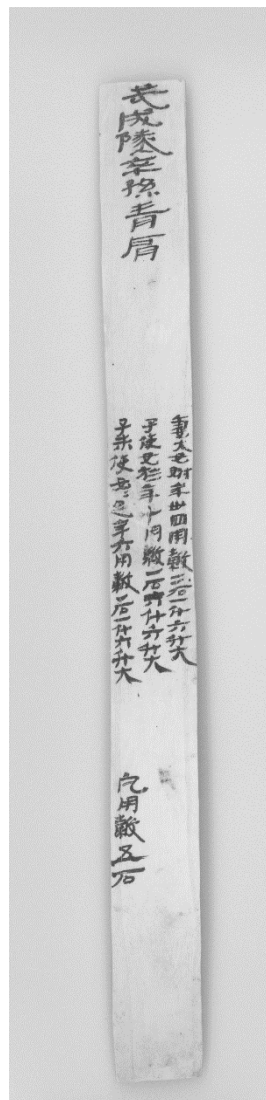 武成隧卒孫青肩
妻大女年卅四用穀二石一斗六升大
子使女於年十用穀一石六斗六升大
子未使女女足年六用穀一石一斗六升大
凡用穀五石